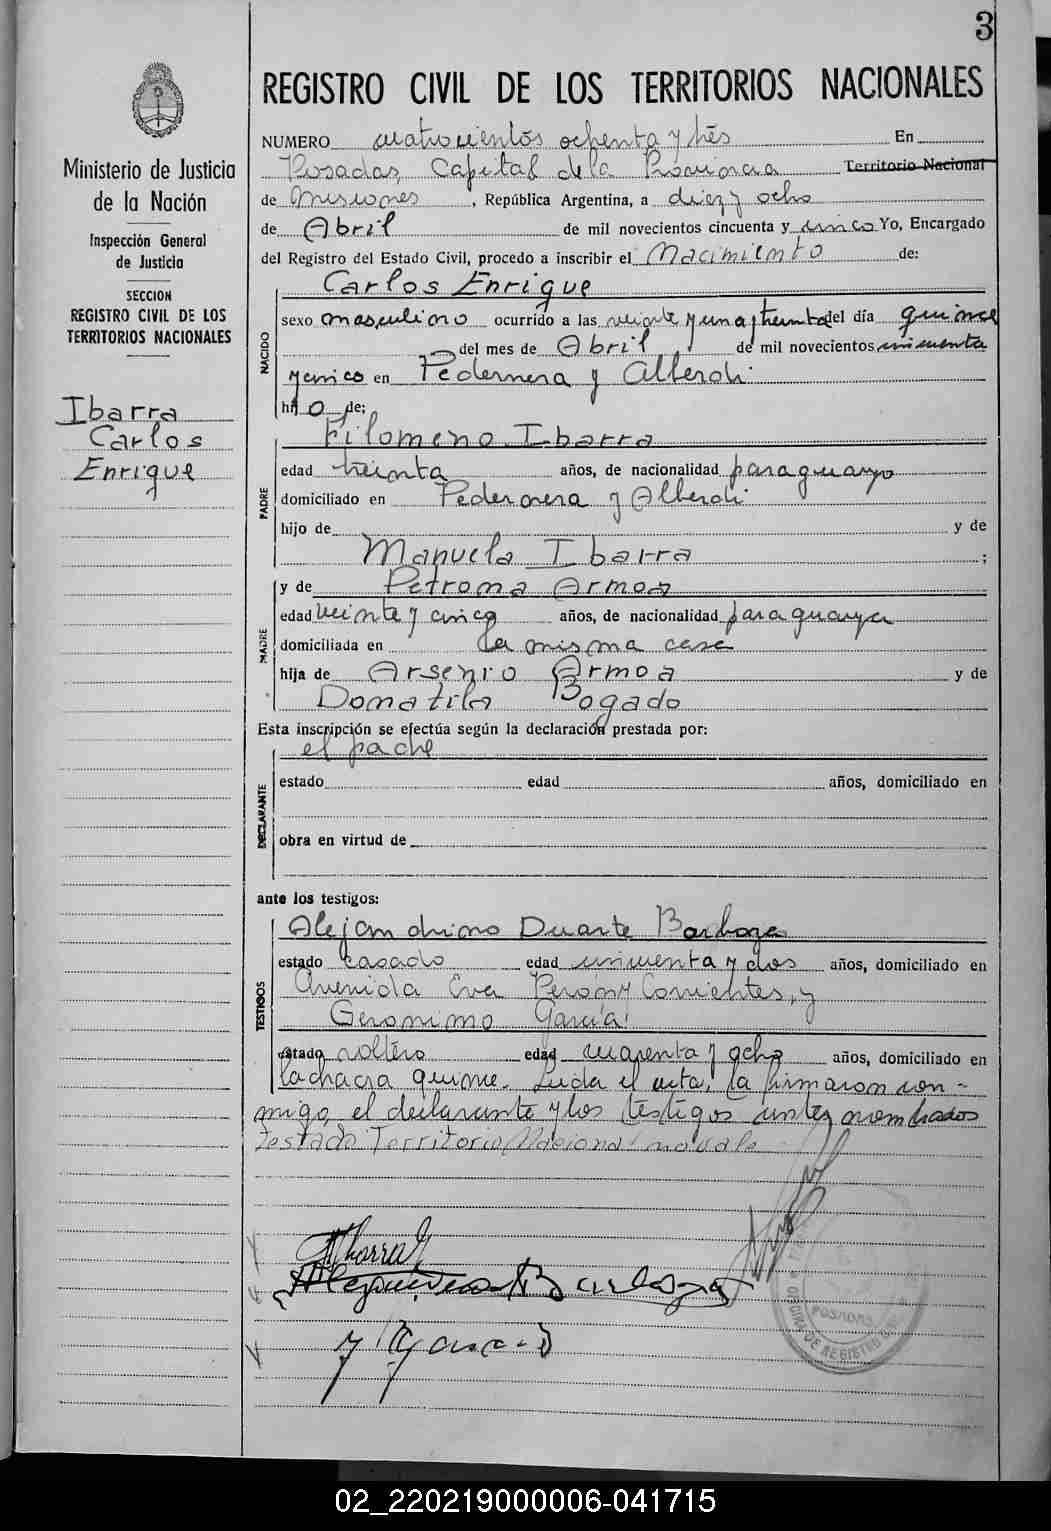 3
REGISTRO CIVIL DE LOS TERRITORIOS NACIONALES
Ministerio de Justicia
de la Nación
Inspección General
de Justicia
SECCION
REGISTRO CIVIL DE LOS
TERRITORIOS NACIONALES
Ibarra
Carlos
Enrique
NUMERO cuatrocientos ochenta y tres En
Posadas, Capital de la Provincia Territorio Nacional
de Misiones, República Argentina, a diez y ocho
de Abril de mil novecientos cincuenta y cinco Yo, Encargado
del Registro del Estado Civil, procedo a inscribir el Nacimiento de:
NACIDO
Carlos Enrique
sexo masculino ocurrido a las veinte y una y treinta del día quince
del mes de Abril de mil novecientos cincuenta
y cinco en Pedernera y Alberdi
hijo de:
PADRE
Filomeno Ibarra
edad treinta años, de nacionalidad paraguayo
domiciliado en Pedernera y Alberdi
hijo de y de
Manuela Ibarra ;
MADRE
y de Petrona Armoa
edad veinte y cinco años, de nacionalidad paraguaya
domiciliada en la misma casa
hija de Arsenio Armoa y de
Donatila Bogado
Esta inscripción se efectúa según la declaración prestada por:
el padre
DECLARANTE
estado edad años, domiciliado en
obra en virtud de
ante los testigos:
TESTIGOS
Alejandrino Duarte Barboza
estado casado edad cincuenta y dos años, domiciliado en
Avenida Eva Perón y Corrientes, y
Geronimo García
estado soltero edad cuarenta y ocho años, domiciliado en
la chacra quince. Leída el acta, la firmaron con-
migo, el declarante y los testigos antes nombrados
Testado Territorio Nacional no vale
FIbarra
Alejandrino D Barboza
y G Garcia
OFICINA DE REGISTRO
POSADAS
02_220219000006-041715